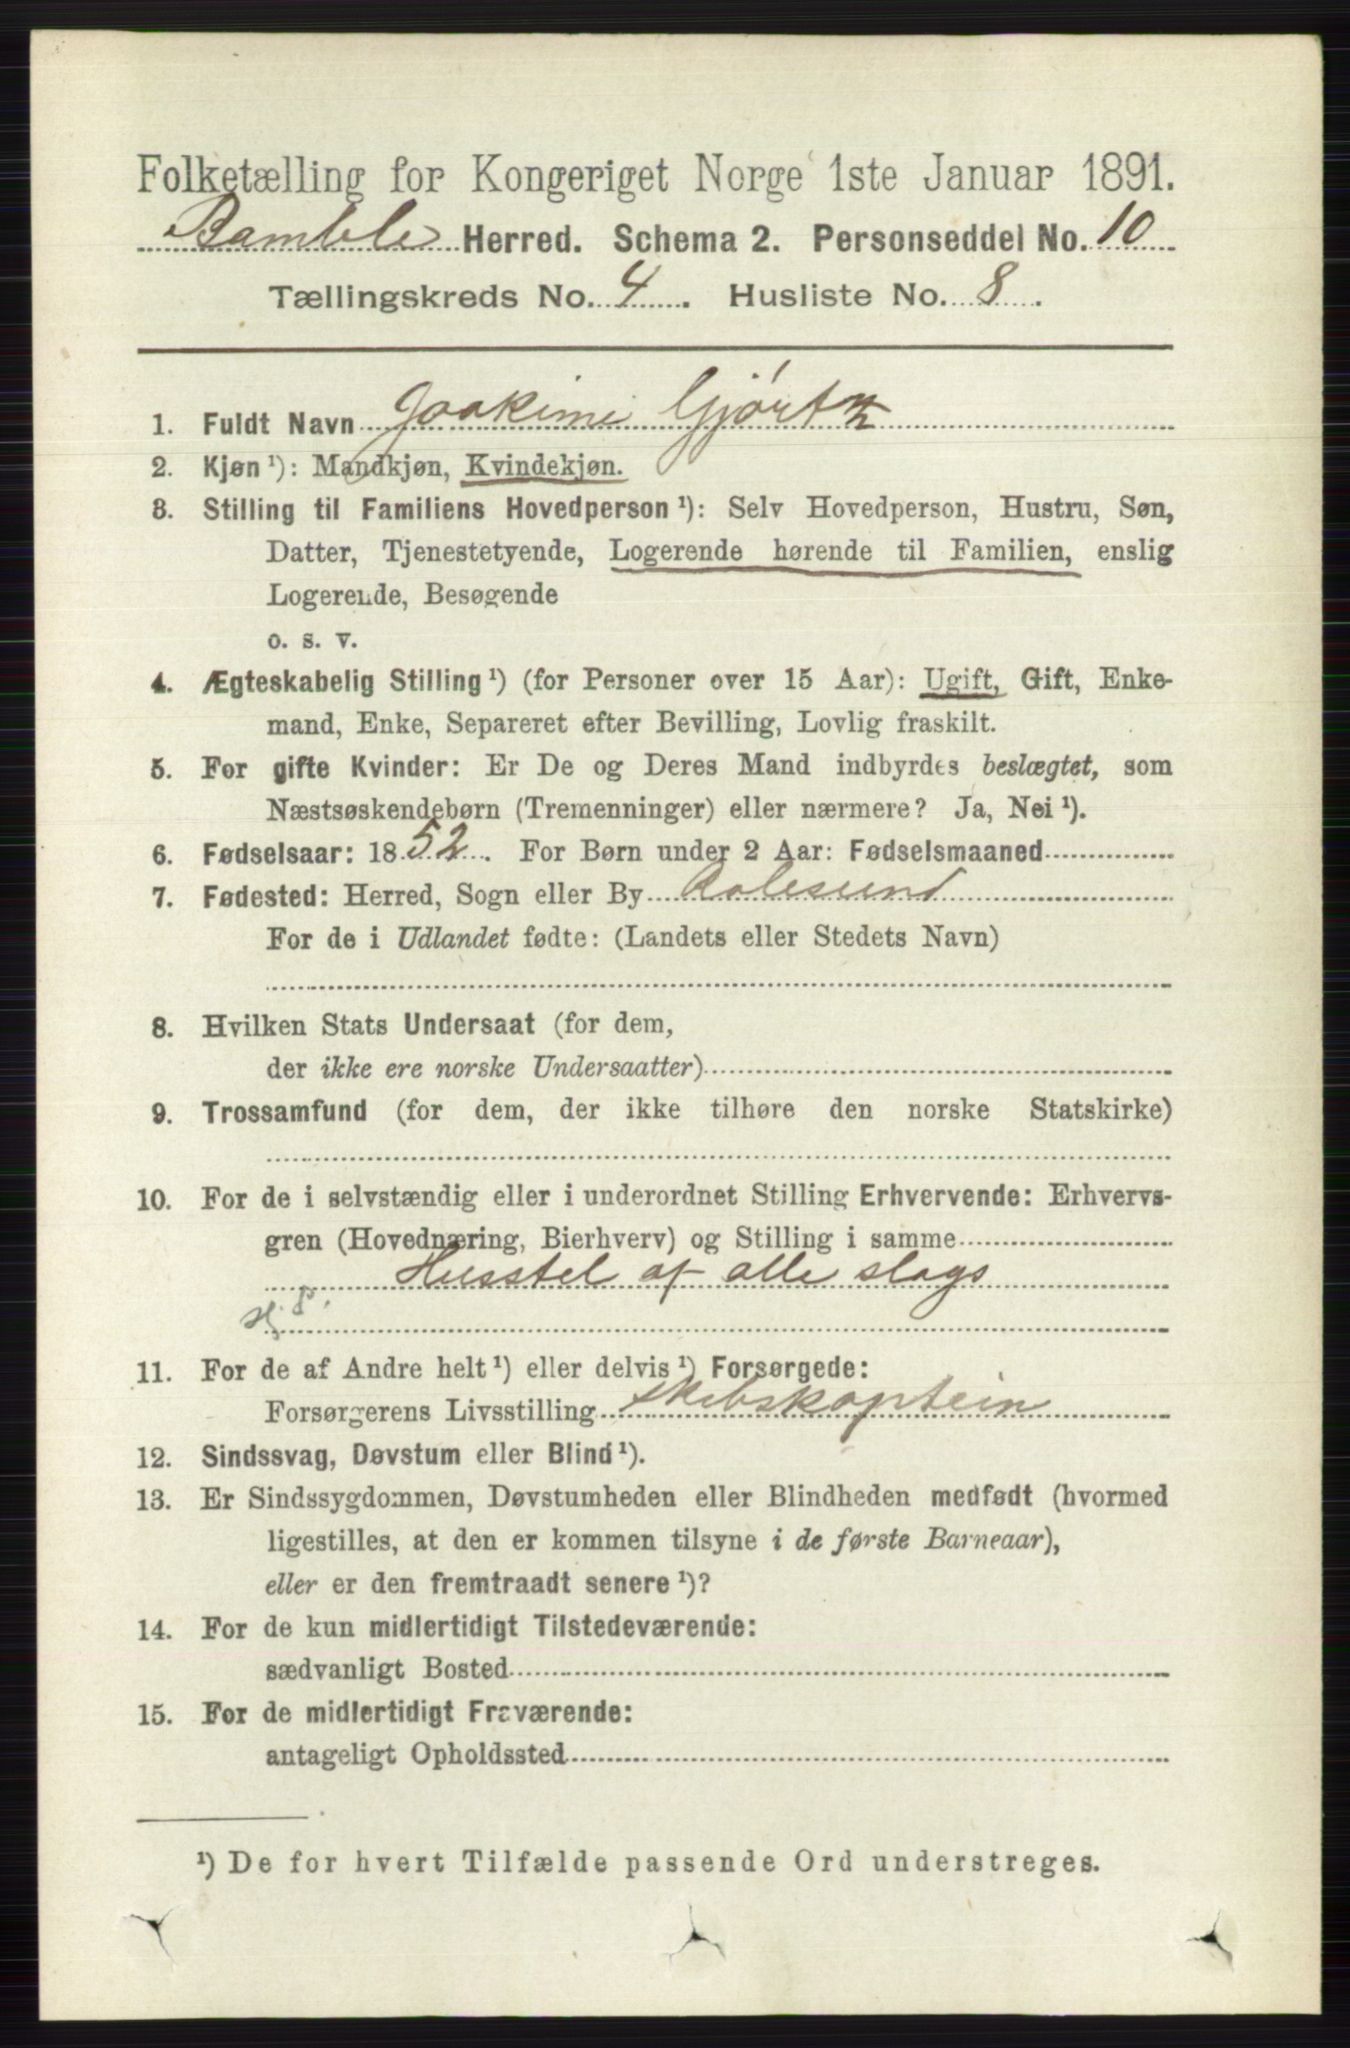 Folketælling for Kongeriget Norge 1ste Januar 1891.
Bamble Herred. Schema 2. Personseddel No. 10
Tællingskreds No. 4. Husliste No. 8.
1. Fuldt Navn Joakime Gjørtz
2. Kjøn¹): Mandkjøn, Kvindekjøn.
3. Stilling til Familiens Hovedperson¹): Selv Hovedperson, Hustru, Søn,
Datter, Tjenestetyende, Logerende hørende til Familien, enslig
Logerende, Besøgende
o. s. v.
4. Ægteskabelig Stilling¹) (for Personer over 15 Aar): Ugift, Gift, Enke-
mand, Enke, Separeret efter Bevilling, Lovlig fraskilt.
5. For gifte Kvinder: Er De og Deres Mand indbyrdes beslægtet, som
Næstsøskendebørn (Tremenninger) eller nærmere? Ja, Nei¹).
6. Fødselsaar: 1852. For Børn under 2 Aar: Fødselsmaaned
7. Fødested: Herred, Sogn eller By Aalesund
For de i Udlandet fødte: (Landets eller Stedets Navn)
8. Hvilken Stats Undersaat (for dem,
der ikke ere norske Undersaatter)
9. Trossamfund (for dem, der ikke tilhøre den norske Statskirke)
10. For de i selvstændig eller i underordnet Stilling Erhvervende: Erhvervs-
gren (Hovednæring, Bierhverv) og Stilling i samme
Husstel af alle slags
11. For de af Andre helt¹) eller delvis¹) Forsørgede:
Forsørgerens Livsstilling Skibskaptein
12. Sindssvag, Døvstum eller Blind¹).
13. Er Sindssygdommen, Døvstumheden eller Blindheden medfødt (hvormed
ligestilles, at den er kommen tilsyne i de første Barneaar),
eller er den fremtraadt senere¹)?
14. For de kun midlertidigt Tilstedeværende:
sædvanligt Bosted
15. For de midlertidigt Fraværende:
antageligt Opholdssted
¹) De for hvert Tilfælde passende Ord understreges.